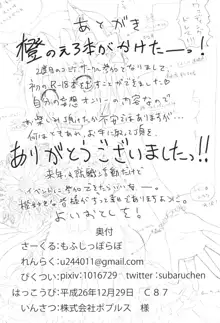 あとがき
橙のえろ本がかけたーっ！
2度目のコピケット参加となりまして、
初のR-18本を出すことができました
自分の妄想オンリーの内容なので
お気に召し頂けたか不安ではありますが…
何はともあれ、お手に取って頂き
ありがとうございましたっ!!
来年も
イベントに参加できたらいいな、
よいおとしを！
奥付
さーくる：もふしっぽらぼ
れんらく：u244011@gmail.com
ぴくつい：pixiv：1016729 twitter：subaruchen
はっこうび：平成26年12月29日 C87
いんさつ：株式会社ポプルス 様